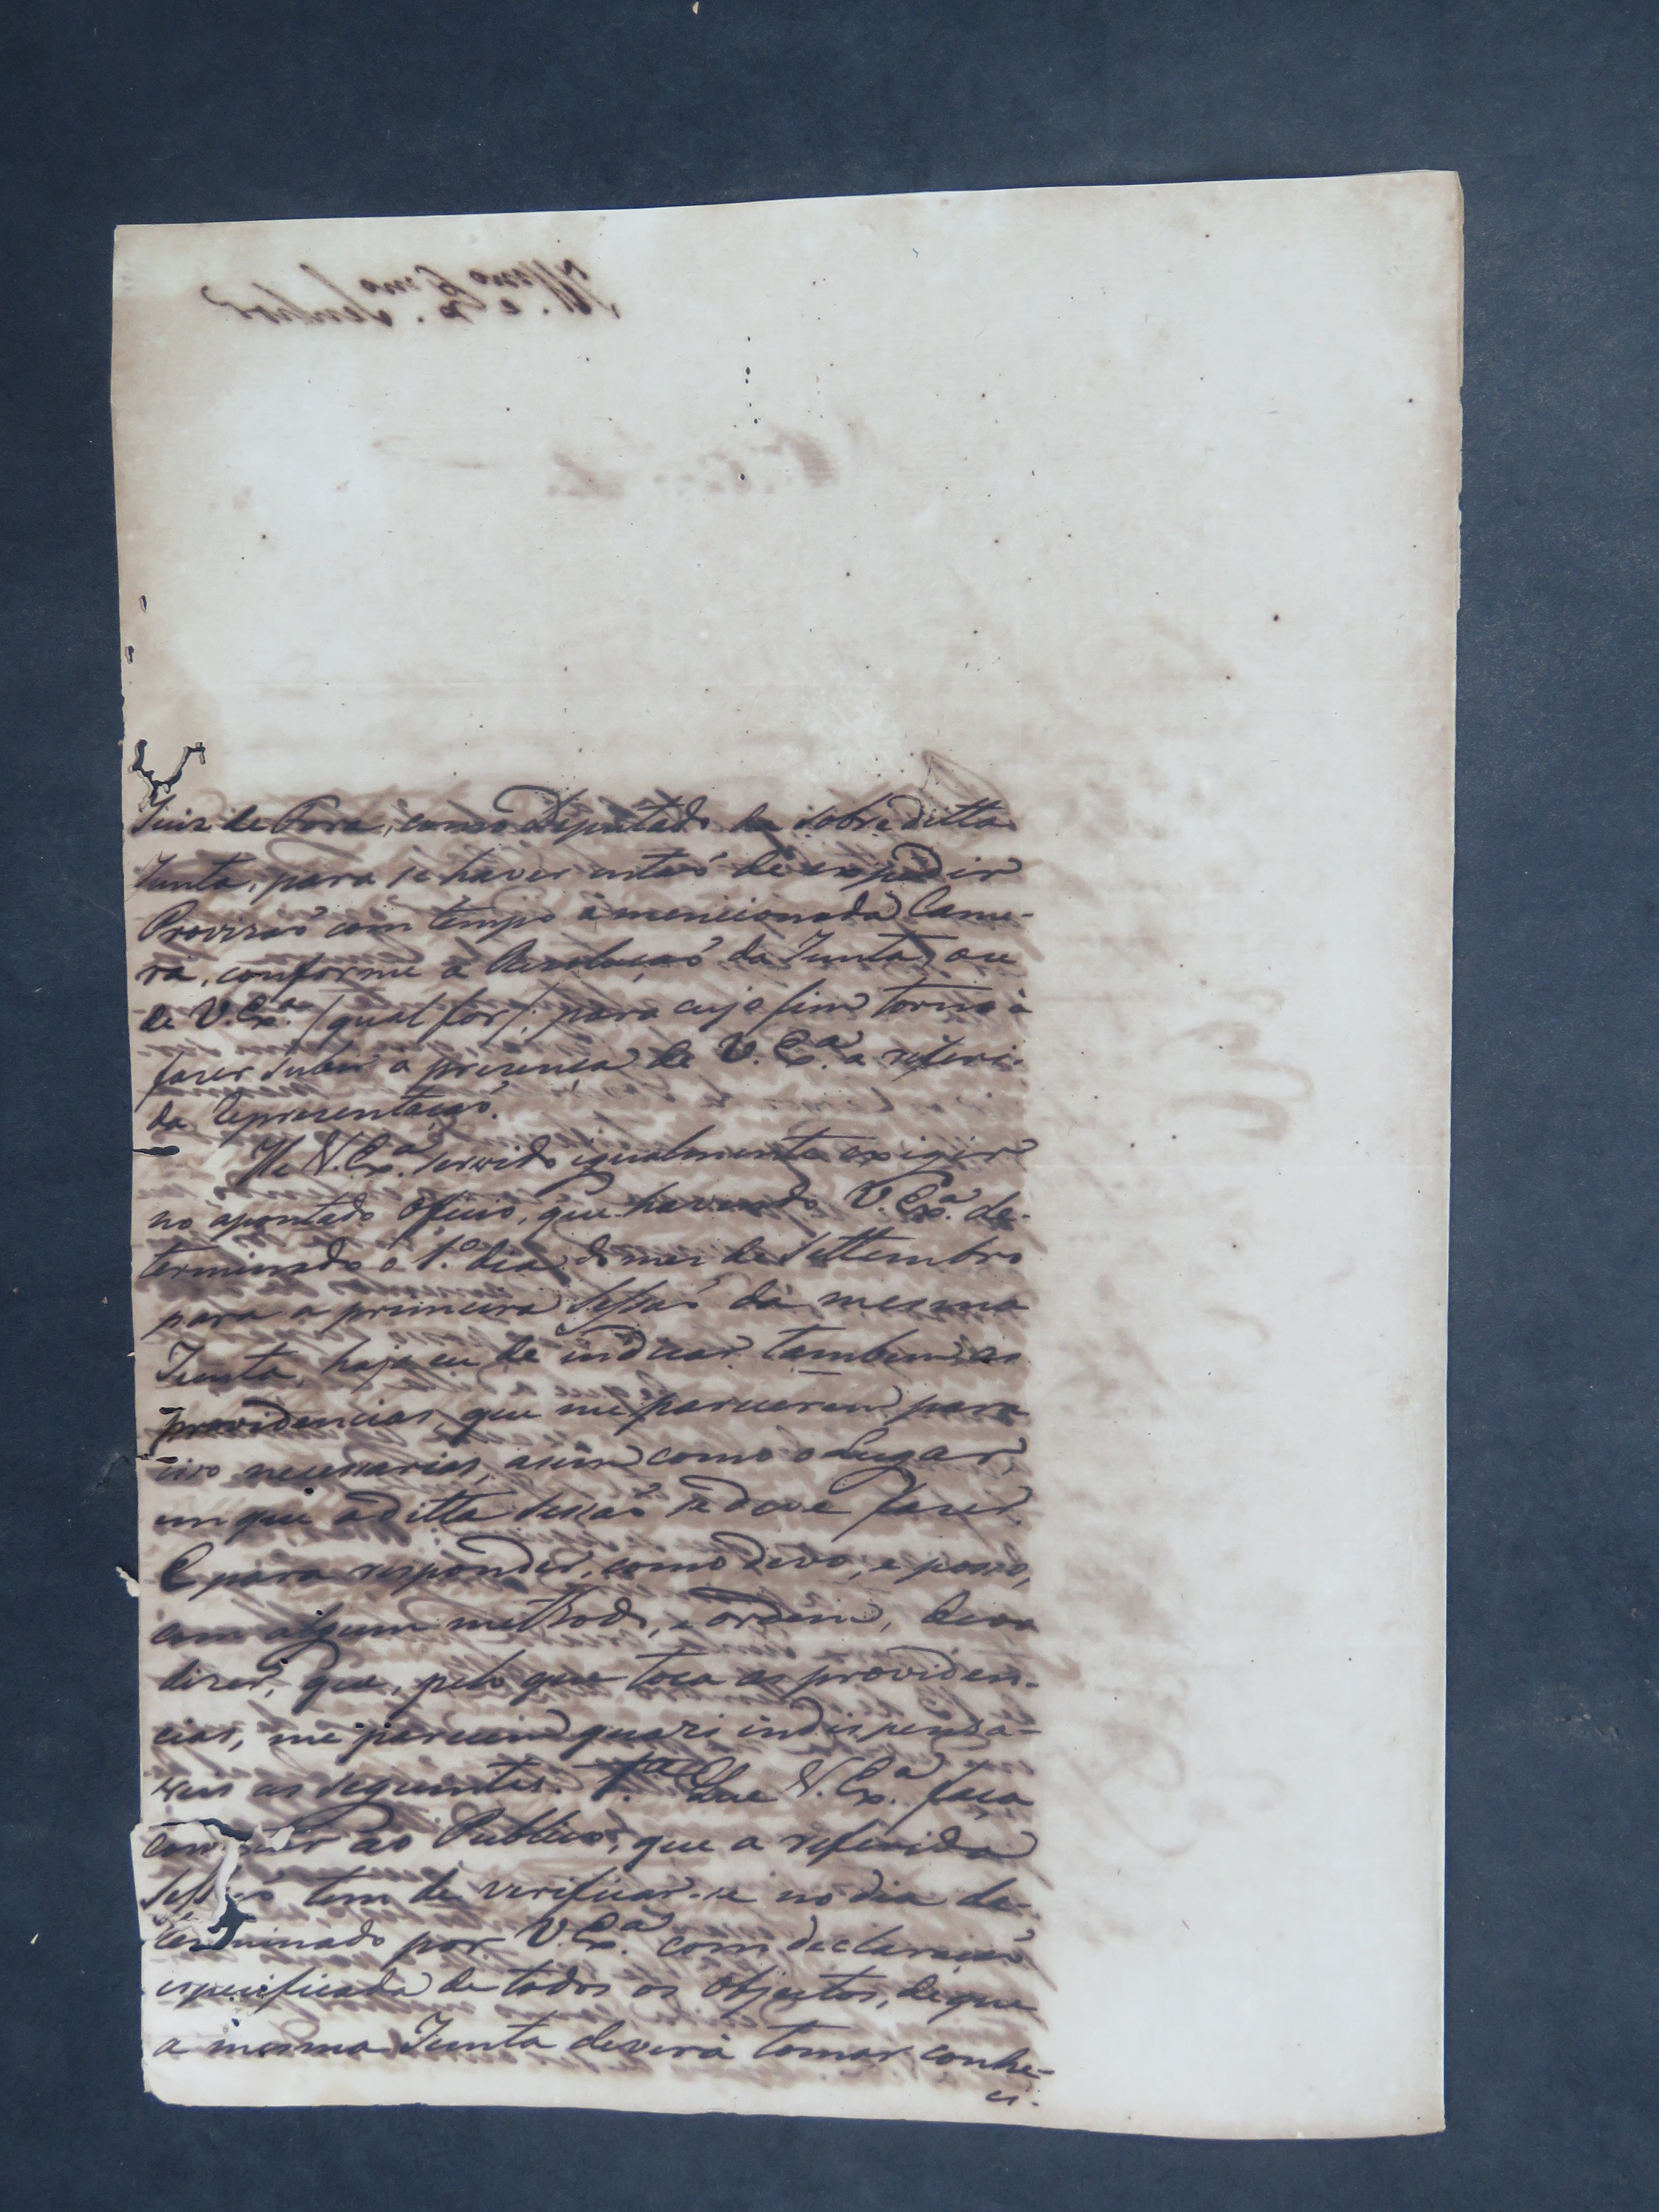 Juiz de Fora, como Deputado da sobreditta
Junta, para se haver entaõ de expedir
Provizaõ com tempo á mencionada Came-
ra, conforme a Resoluçaõ da Junta, ou
de V. Ex.ª (qual for); para cujo fim torno á
fazer subir a prezença de V. Ex.ª a referi-
da Representaçaõ.
He V. Ex.ª servido igualmente exigir
no apontado Officio, que havendo V. Ex.ª de-
terminado o 1.º dia do mez de Settembro
para a primeira Sessaõ da mesma
Junta, haja eu de indicar tambem as
providencias, que me parecerem para
isso necessarias, assim como o Lugar,
em que a ditta Sessaõ se deve fazer.
E para responder, como devo, e posso,
com algum methodo, e ordem, devo
dizer, que, pelo que toca as providen-
cias, me parecem quazi indispensa-
veis as seguintes. 1.ª Que V. Ex.ª faça
ao Publico, que a referida
Sessaõ tem de verificar-se no dia de-
terminado por V. Ex.ª com declaraçaõ
especificada de todos os objectos, de que
a mesma Junta deverá tomar conhe-
ci-